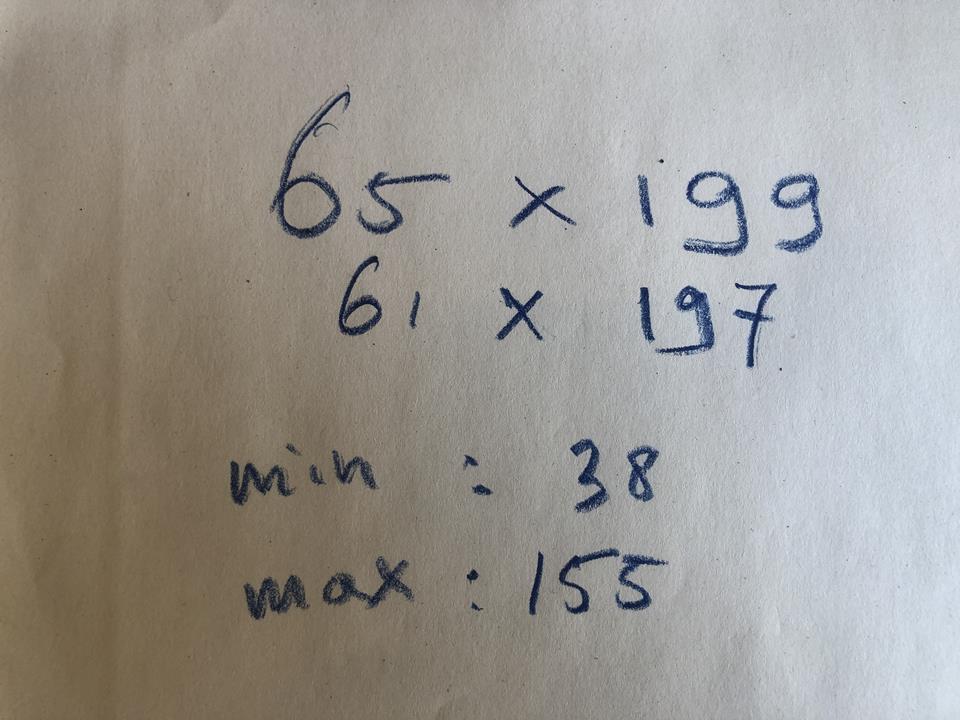 65 x 199
61 x 197
min : 38
max : 155